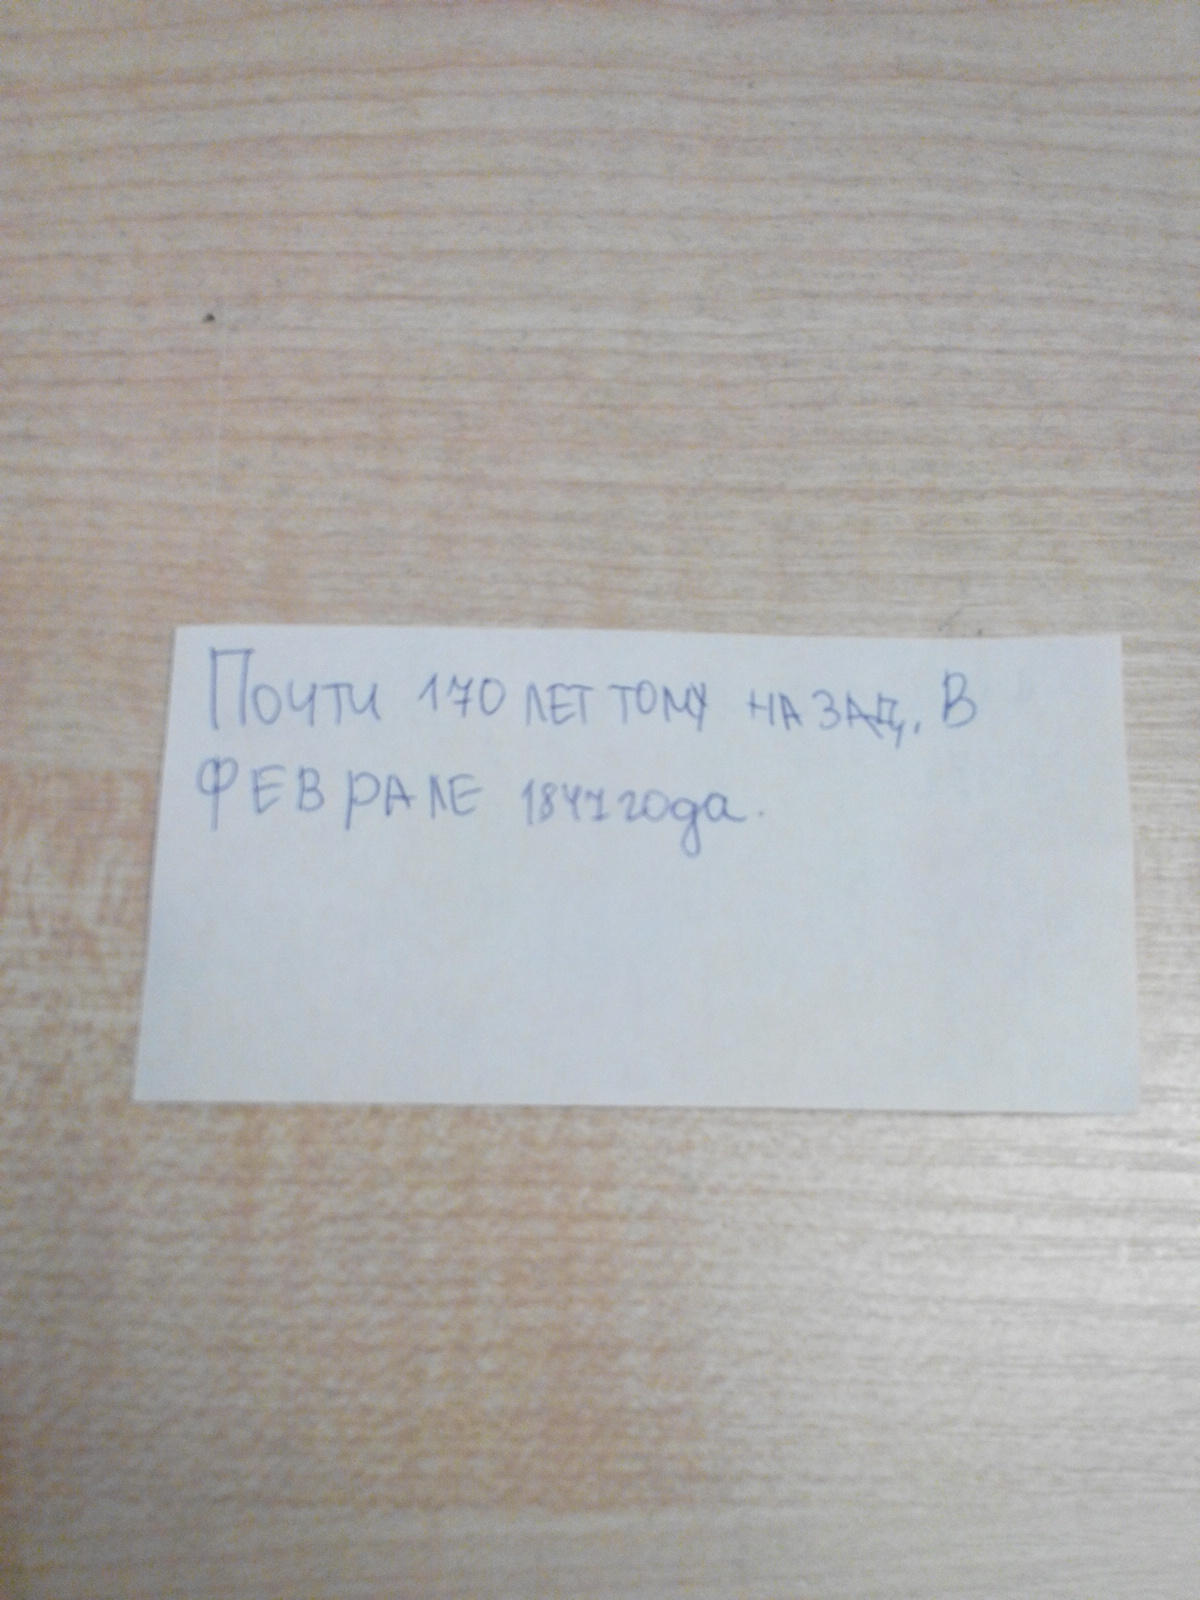 Почти 170 лет тому назад, в
феврале 1847 года.